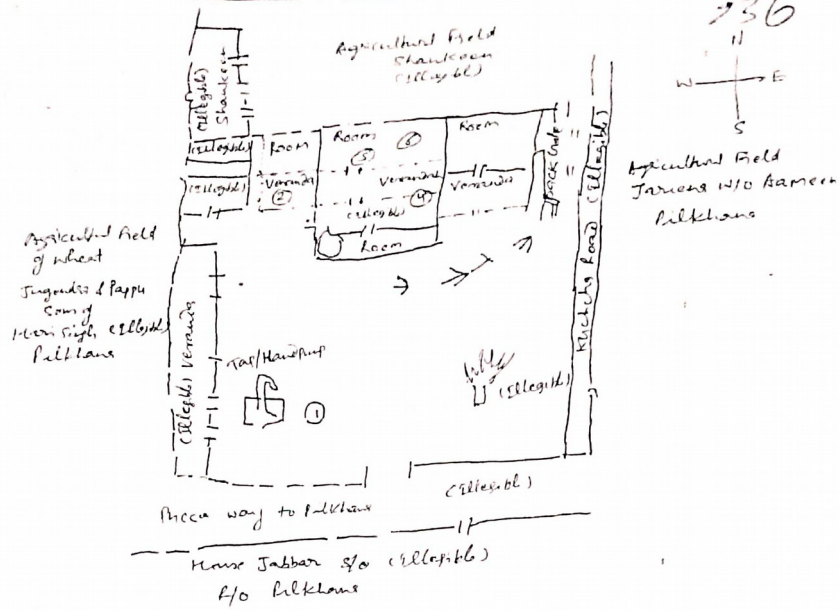 736
N
W E
S
Agricultural Field
Shaukeen
(Illegibl)
(Illegibl)
Shaukeen
(Illegibl)
Room
Room
5
6
Room
(Illegibl)
Veranda
2
Veranda
4
Veranda
(Illegibl)
Room
Back Side
Kuchcha Road (Illegibl)
Agricultural Field
W/O Aameen
Pilkhana
Agricultural Field
of wheat
& Pappu
Sons of
Hari Singh (Illegibl)
Pilkhana
(Illegibl) Veranda
Tap/Handpump
1
(Illegibl)
(Illegibl)
Pucca way to Pilkhana
House Jabbar S/o (Illegibl)
R/o Pilkhana